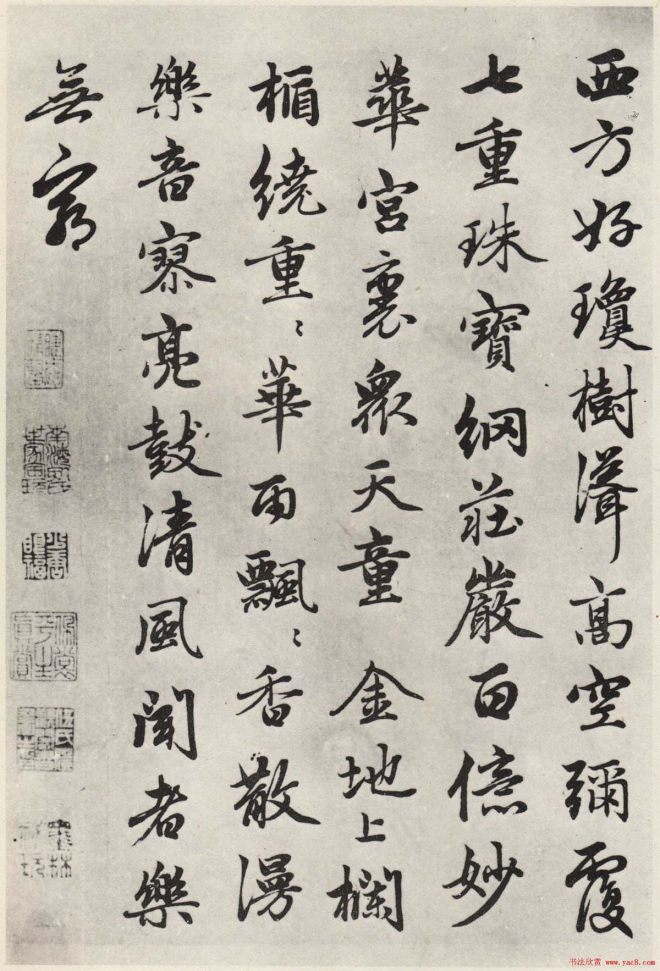 西方好瓊樹聳高空彌覆
七重珠寶網莊嚴百億妙
華宮裏眾天童 金地上欄
楯繞重〻華雨飄〻香散漫
樂音寥亮鼓清風聞者樂
無窮
书法欣赏 www.yac8.com